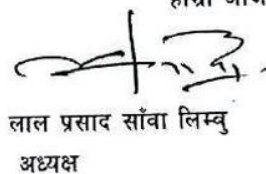 लाल प्रसाद साँवा लिम्बु
अध्यक्ष